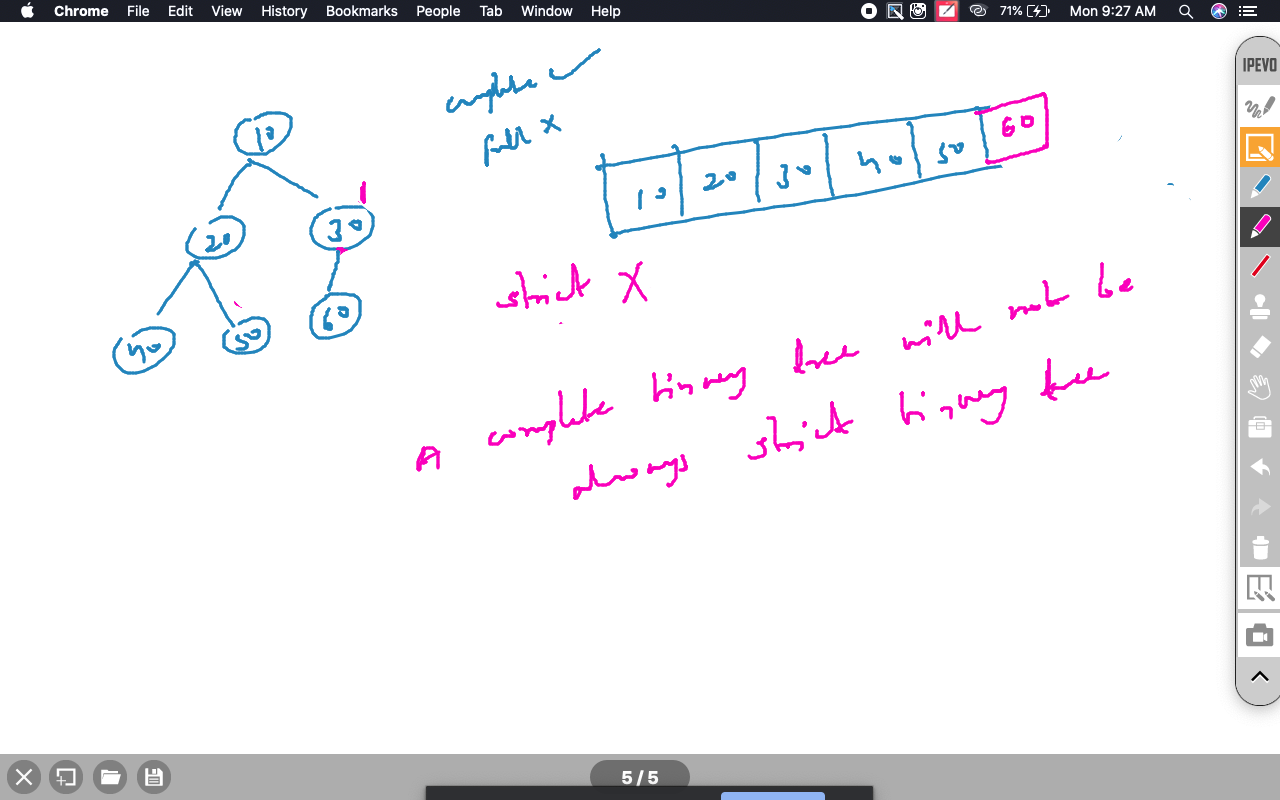 Chrome File Edit View History Bookmarks People Tab Window Help 71% Mon 9:27 AM
IPEVO
complete ✓
full X
10
20 30
40 50 60
10 20 30 40 50 60
strict X
A complete binary tree will not be
always strict binary tree
1
5 / 5